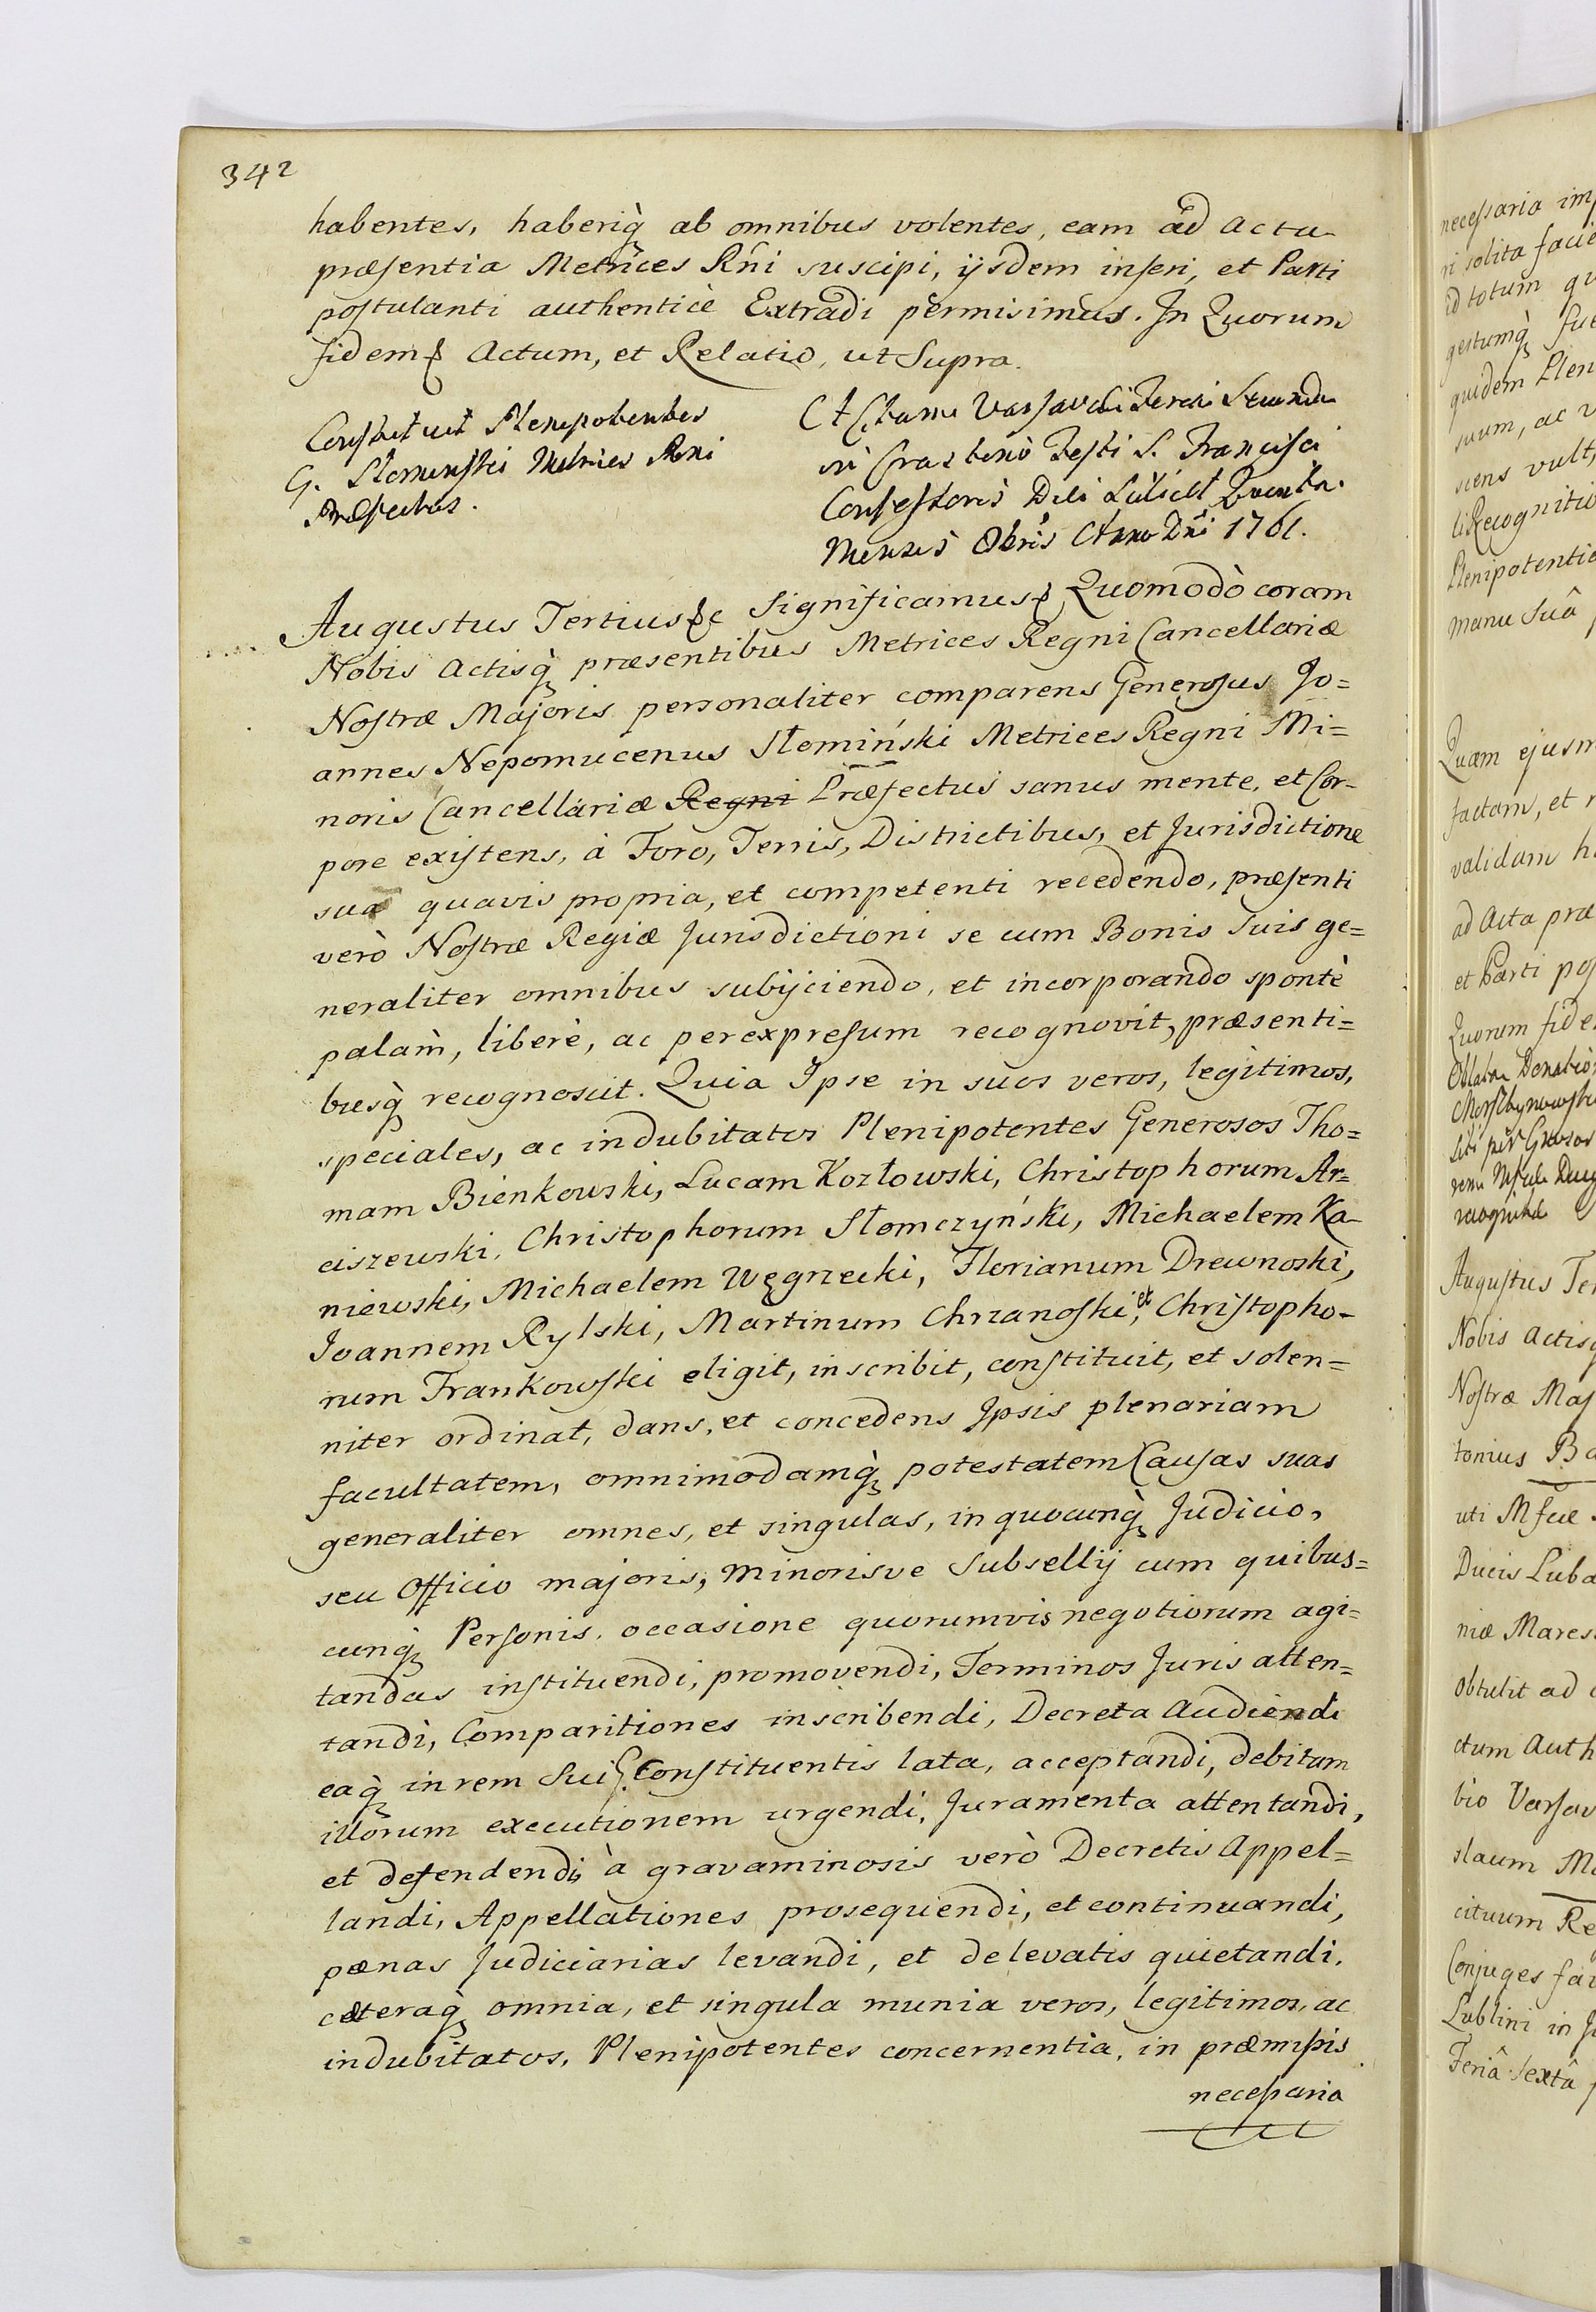 342
habentes, haberiq̀ ab omnibus volentes, eam ad Actu
præsentia Metrices Rñi suscipi, ijsdem inseri, et Parti
postulanti authenticè Extradi permisimus. In Quorum
fidem & Actum, et Relatio, ut Supra.
Constituit Plenipotentes
G. Słominski Metrices Rñi
Præfectus.
Actum Varsaviæ Feria Secunda
in Crastinò Festi S. Francisci
Confessoris Die Scilicet Quinta
Mensis Obris Anno Dñi 1761.
Augustus Tertius &c Significamus & Quomodò coram
Nobis Actisq̀ præsentibus Metrices Regni Cancellariæ
Nostræ Majoris personaliter comparens Generosus Jo=
annes Nepomucenus Słomiński Metrices Regni Mi=
noris Cancellariæ Regni Præfectus sanus mente, et Cor-
pore existens, à Foro, Terris, Districtibus, et Jurisdictione
sua quavis propria, et competenti recedendo, præsenti
verò Nostræ Regiæ Jurisdictioni se cum Bonis Suis ge=
neraliter omnibus subijciendo, et incorporando spontè
palam, liberè, ac per expressum recognovit, præsenti=
busq̀ recognoscit. Quia Ipse in suos veros, legitimos,
speciales, ac indubitatos Plenipotentes Generosos Tho=
mam Bienkowski, Lucam Kozłowski, Christophorum Ar=
ciszewski, Christophorum Słomczyński, Michaelem Ka-
niewski, Michaelem Węgrzecki, Florianum Drewnoski,
Joannem Rylski, Martinum Chrzanoski, et Christopho-
rum Frankowski eligit, inscribit, constituit, et solen=
niter ordinat, dans, et concedens Ipsis plenariam
facultatem, omnimodamq̀ potestatem Causas suas
generaliter omnes, et singulas, in quocunq̀ Judicio,
seu Officio majoris, minorisve Subsellij cum quibus=
cunq̀ Personis, occasione quorumvis negotiorum agi=
tandas instituendi, promovendi, Terminos Juris atten=
tandi, Comparitiones inscribendi, Decreta Audiendi
eaq̀ in rem Sui Constituentis lata, acceptandi, debitam
illorum executionem urgendi, Juramenta attentandi,
et defendendi, à gravaminosis verò Decretis Appel=
landi, Appellationes prosequendi, et continuandi,
pœnas Judiciarias levandi, et de levatis quietandi,
cæteraq̀ omnia, et singula munia veros, legitimos, ac
indubitatos, Plenipotentes concernentia, in præmissis
necessaria
necessaria im
ri solita facie
id totum qu
gestumq̀ fue
quidem Plen
suum, ac
sciens vult,
li Recognitio
Plenipotentia
manu Suâ
Quam ejusm
factam, et r
validam h
ad Acta præ
et Parti pos
Quorum fide
Oblata Donatio
recognita
Augustus Ter
Nobis Actisq
Nostræ Maj
tonius Ba
uti Msciæ
Ducis Luba
niæ Mares
obtulit ad
ctum Auth
bio Varsav
slaum Ma
cituum Re
Conjuges fa
Lublini in
Feriâ Sextâ